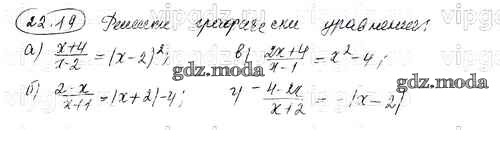 22.19 Решить графически уравнения:
а) \frac{x+4}{x-2} = (x-2)^2; в) \frac{2x+4}{x-1} = x^2-4;
gdz.moda
gdz.moda
б) \frac{2-x}{x+1} = |x+2|-4; г) -\frac{4-2x}{x+2} = |x-2|
gdz.moda